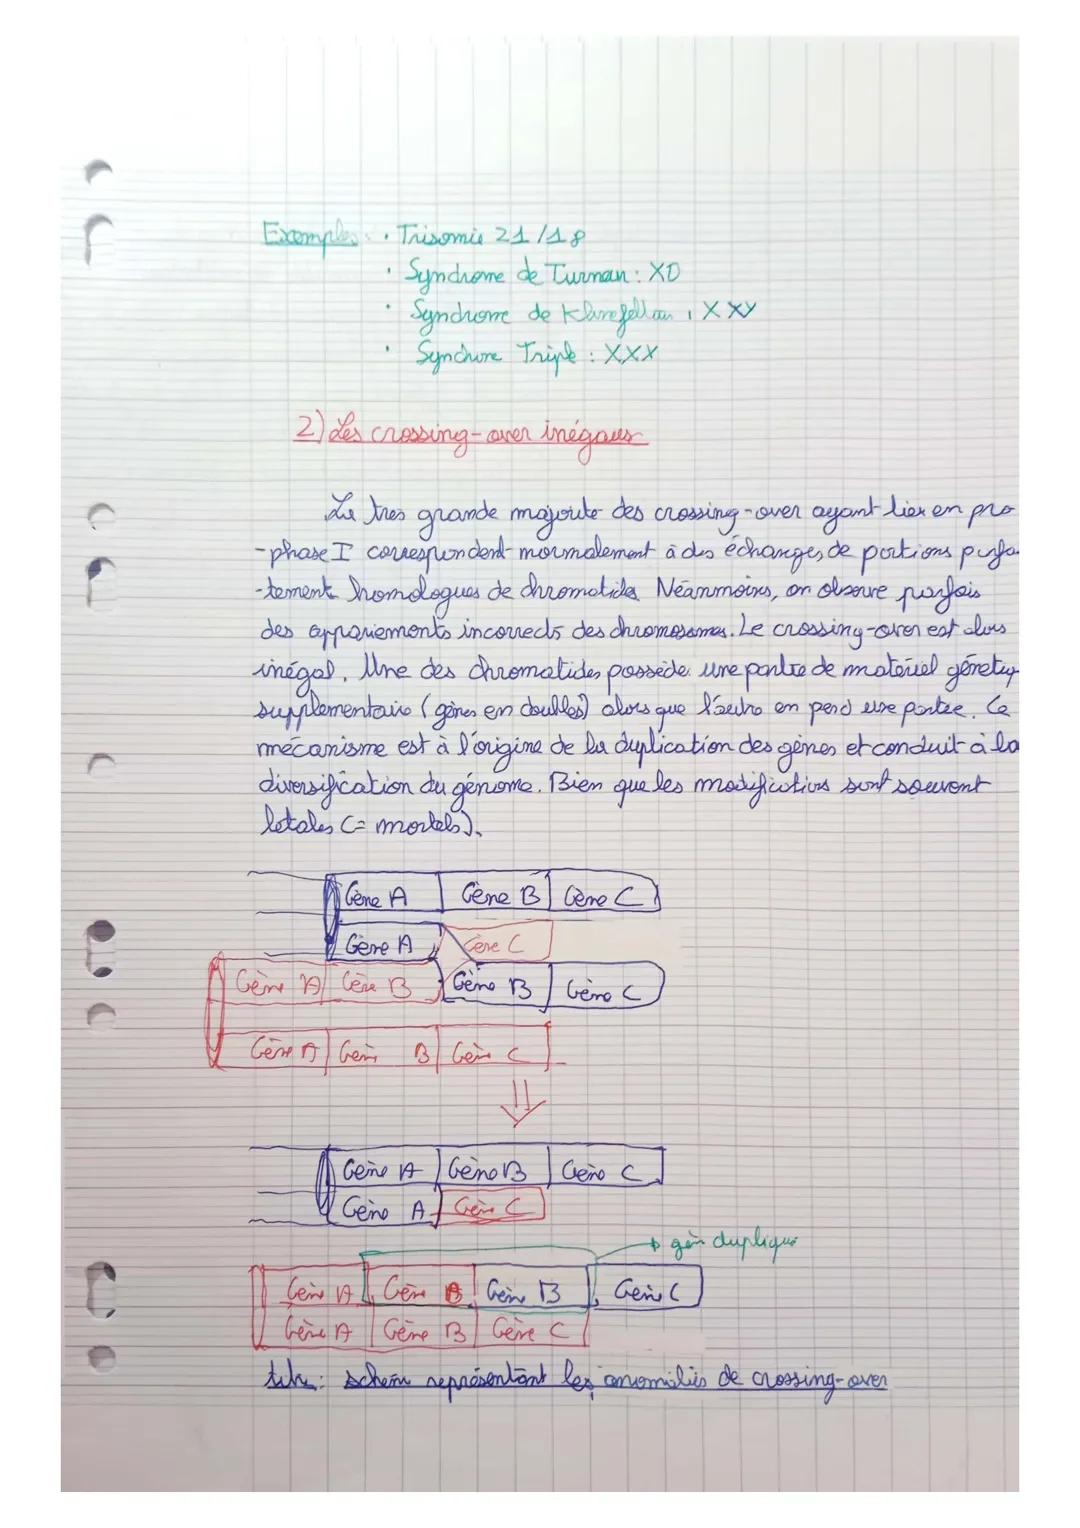 Exemples : • Trisomie 21/18
• Syndrome de Turnan : XO
• Syndrome de Klinefelter : XXY
• Syndrome Triple : XXX
2) Les crossing-over inégaux
La très grande majorité des crossing-over ayant lieu en pro
-phase I correspondent normalement à des échanges, de portions parfa
-tement homologues de chromatides. Néanmoins, on observe parfois
des appariements incorrects des chromosomes. Le crossing-over est alors
inégal. Une des chromatides possède une partie de matériel génétiq
supplémentaire (gènes en doubles) alors que l'autre en perd une partie. Ce
mécanisme est à l'origine de la duplication des gènes et conduit à la
diversification du génome. Bien que les modifications sont souvent
letales (= mortels).
Gène A Gène B Gène C
Gène A Gène C
Gène A Gène B Gène B Gène C
Gène A Gène B Gène C
Gène A Gène B Gène C
Gène A Gène C
gèn duplique
Gène A Gène B Gène B Gène C
Gène A Gène B Gène C
titre : schéma représentant les anomalies de crossing-over